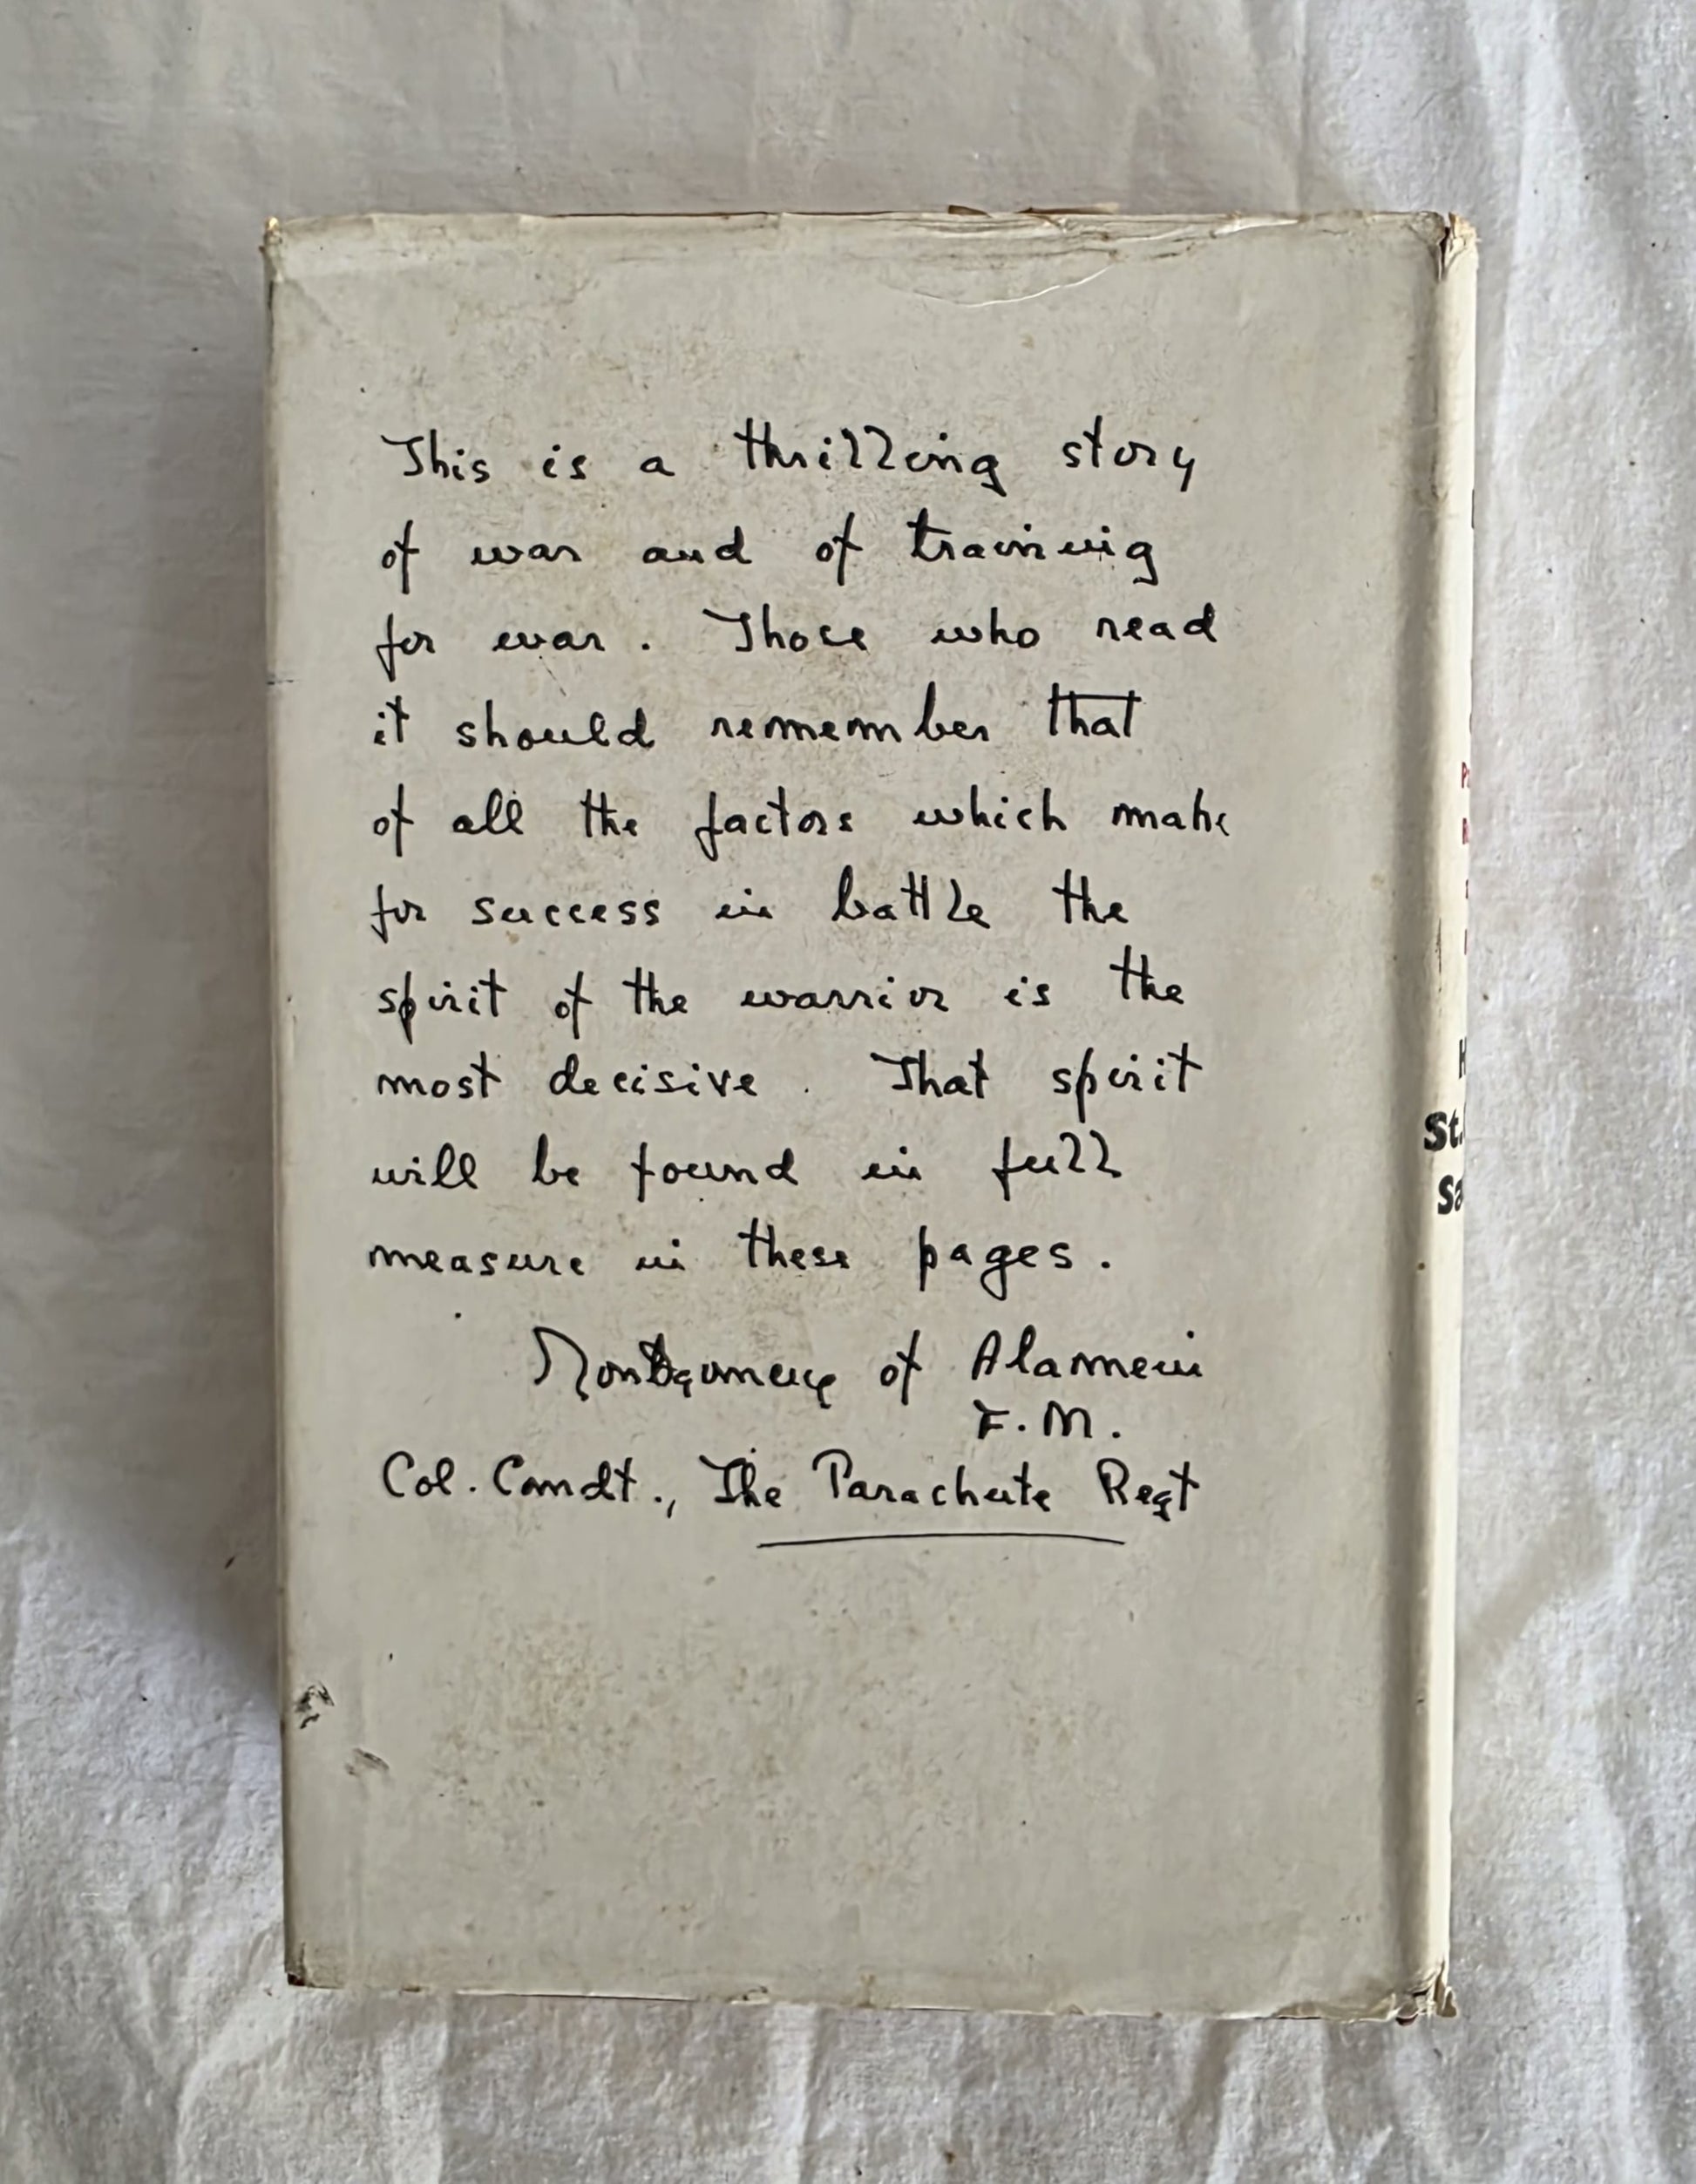 This is a thrilling story
of war and of training
for war. Those who read
it should remember that
of all the factors which make
for success in battle the
spirit of the warrior is the
most decisive. That spirit
will be found in full
measure in these pages.
Montgomery of Alamein
F.M.
Col. Comdt., The Parachute Regt
St.